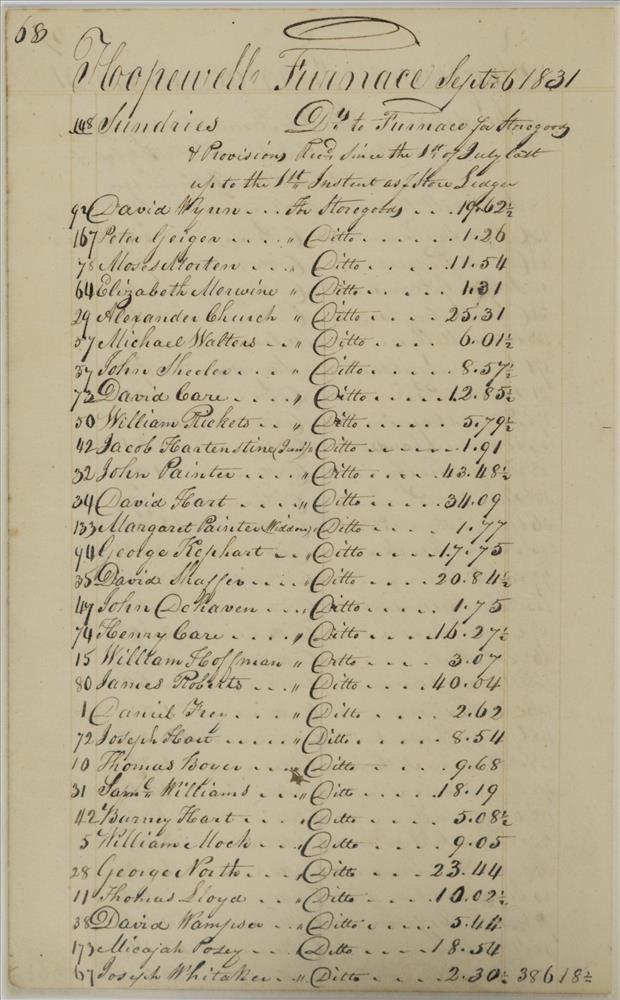 68
Hoopewell Furnace Septr 6 1831
148 Sundries Drs to Furnace for Storegoods
& Provisions Recd Since the 1st of July last
up to the 1st Instant as Store Ledger
92 David Wynn... For Storegoods... 19.62½
167 Peter Geiger.... " Ditto...... 1.26
78 Moses Morten.... " Ditto..... 11.54
64 Elizabeth Merwine " Ditto..... 1.31
29 Alexander Church " Ditto.... 25.31
57 Michael Walters.. " Ditto.... 6.01½
37 John Sheeler... " Ditto..... 8.57½
73 David Care.... " Ditto.... 12.85½
50 William Rickets.. " Ditto.... 5.79½
42 Jacob Hartenstine (Junr) " Ditto..... 1.91
32 John Painter.... " Ditto.... 43.48½
34 David Hart.... " Ditto.... 34.09
133 Margaret Painter (Widdow) " Ditto.... 1.77
94 George Kephart... " Ditto.... 17.75
35 David Shaffer.... " Ditto.... 20.84½
47 John DeHaven... " Ditto.... 1.75
74 Henry Care.... " Ditto.... 16.27½
15 William Hoffman " Ditto.... 3.07
80 James Roberts... " Ditto.... 40.04
1 Daniel Frey.... " Ditto.... 2.62
72 Joseph Hart..... " Ditto.... 8.54
10 Thomas Boyer.... " Ditto.... 9.68
31 Saml Williams.... " Ditto.... 18.19
42 Barney Hart.... " Ditto.... 5.08½
5 William Mock... " Ditto.... 9.05
28 George North... " Ditto... 23.44
11 Thomas Lloyd... " Ditto.... 10.02½
38 David Wampser... " Ditto.... 5.44
173 Micajah Posey... Ditto.... 18.54
67 Joseph Whitaker.. " Ditto.... 2.30½ 386 18½